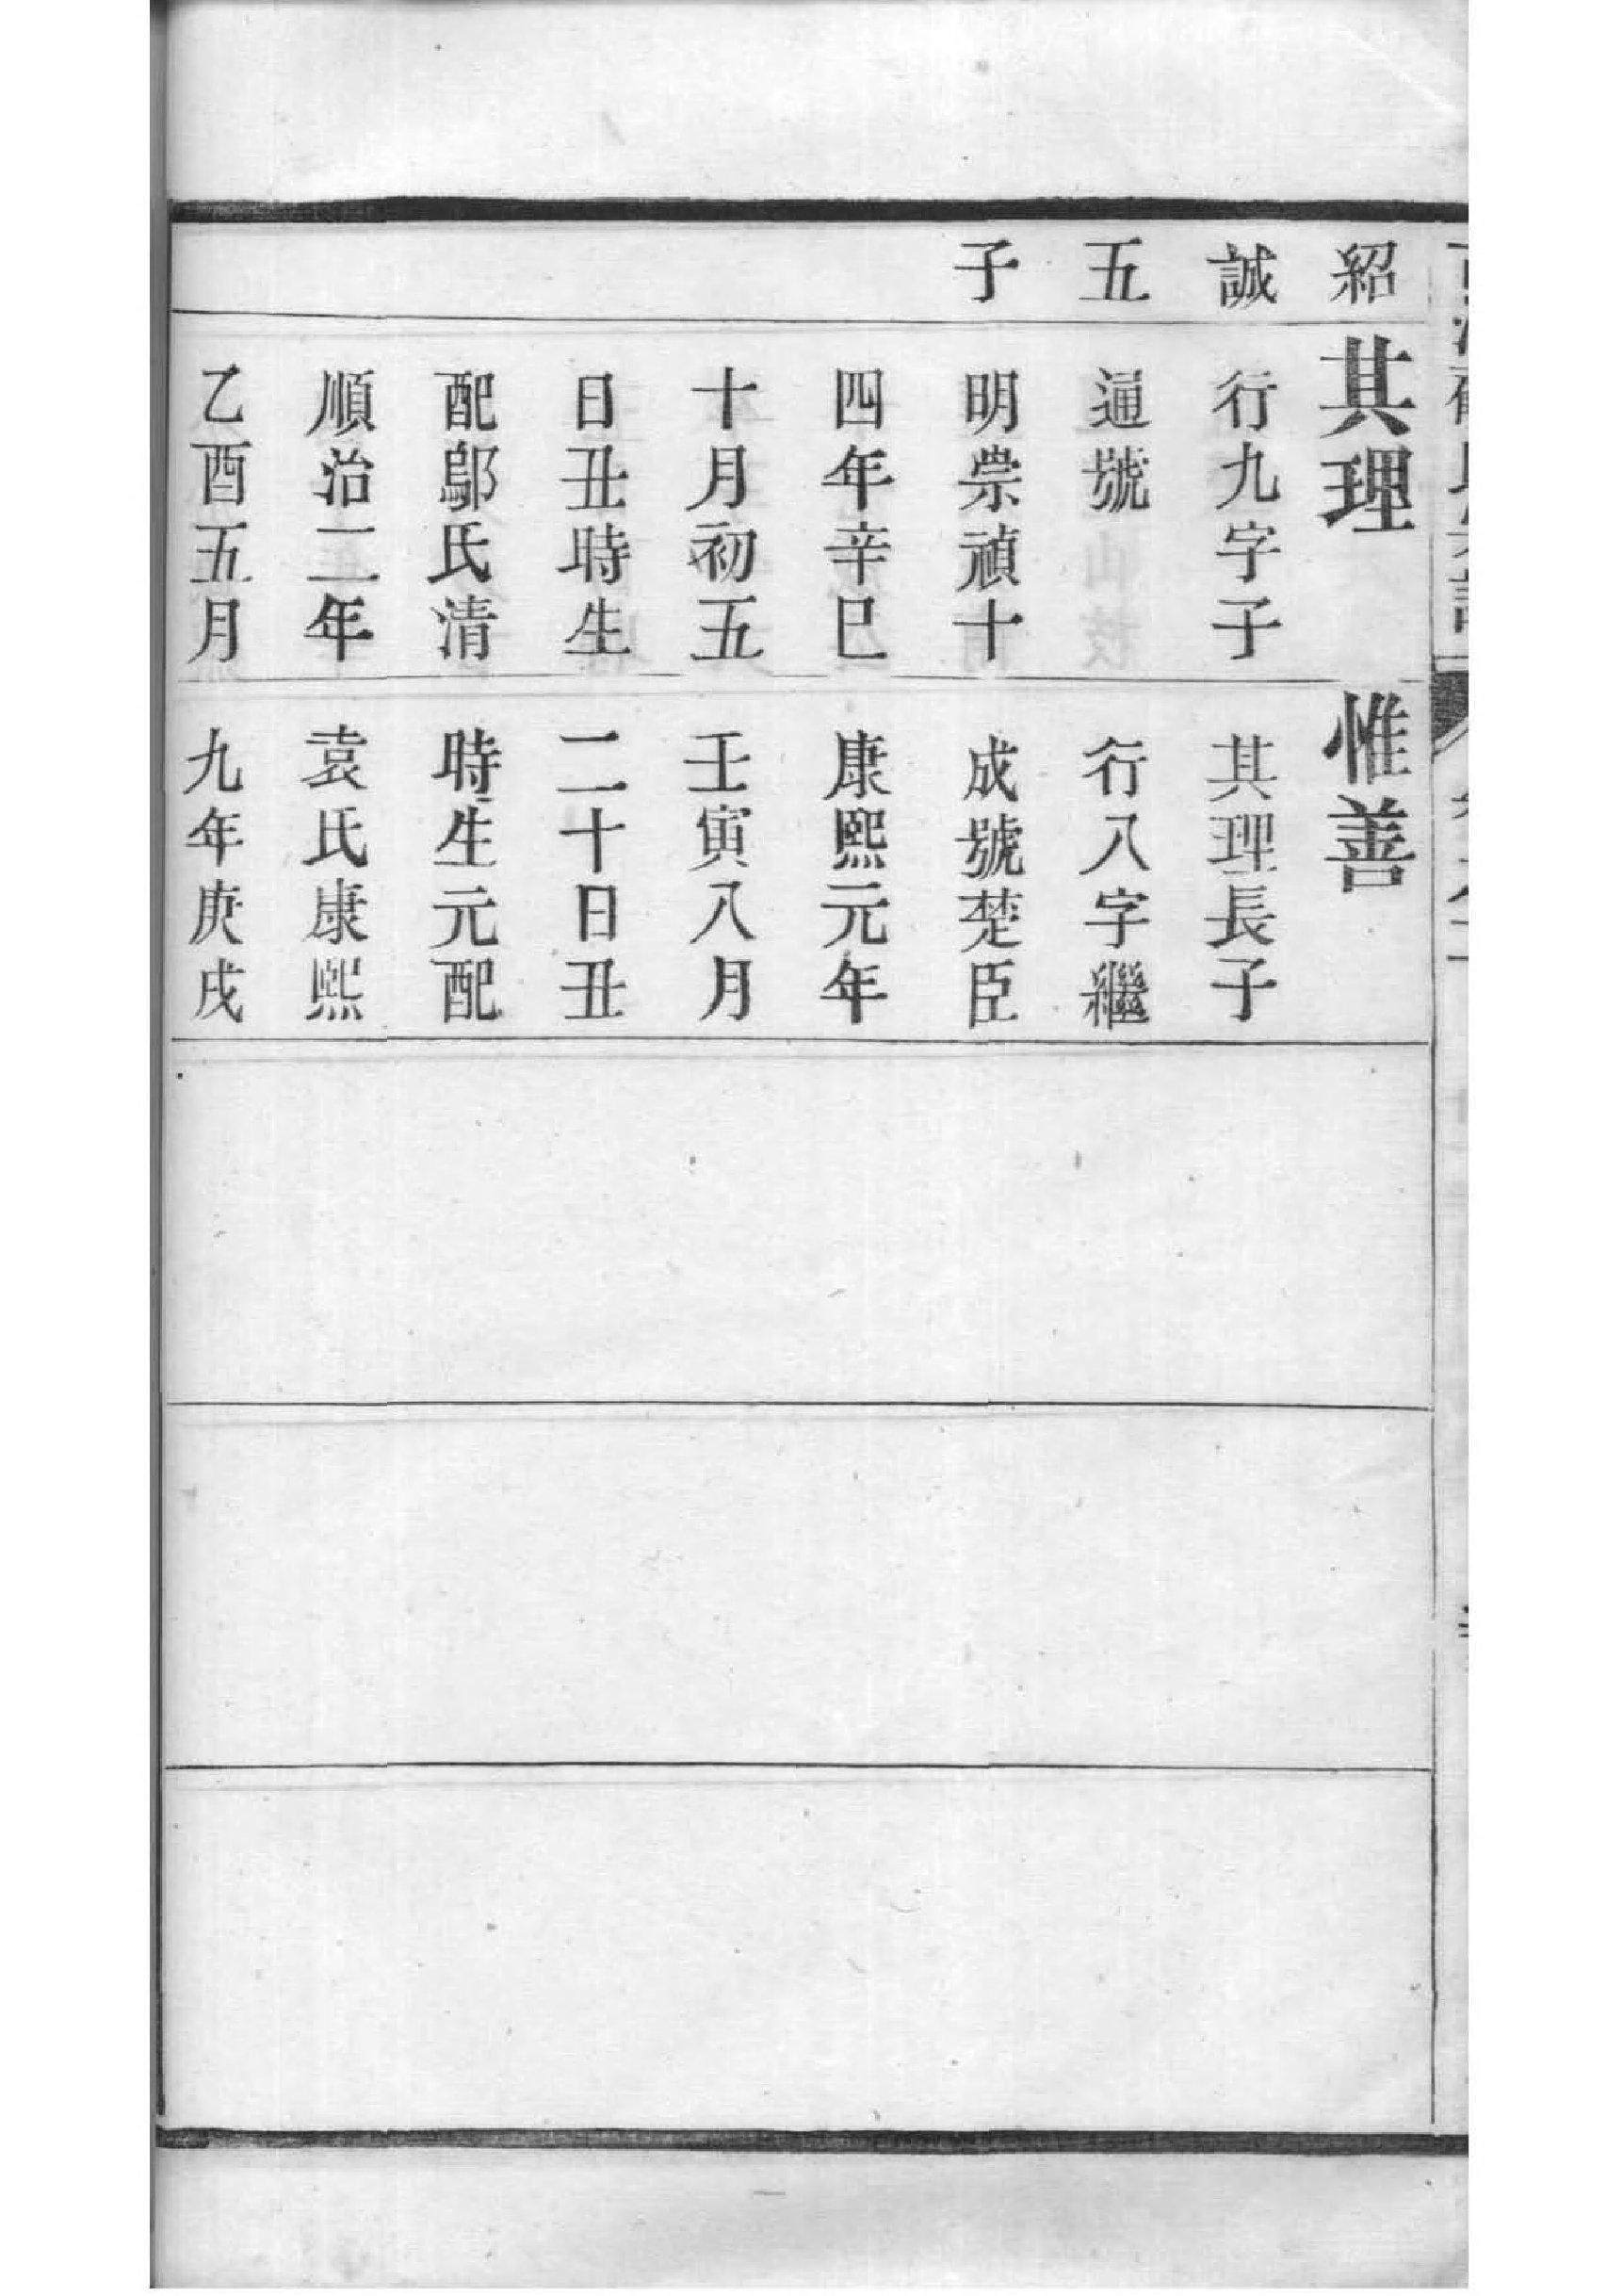 紹
誠
五
子
其理
行九字子
通號
明崇禎十
四年辛巳
十月初五
日丑時生
配鄔氏清
順治二年
乙酉五月
惟善
其理長子
行八字繼
成號楚臣
康熙元年
壬寅八月
二十日丑
時生元配
袁氏康熙
九年庚戌